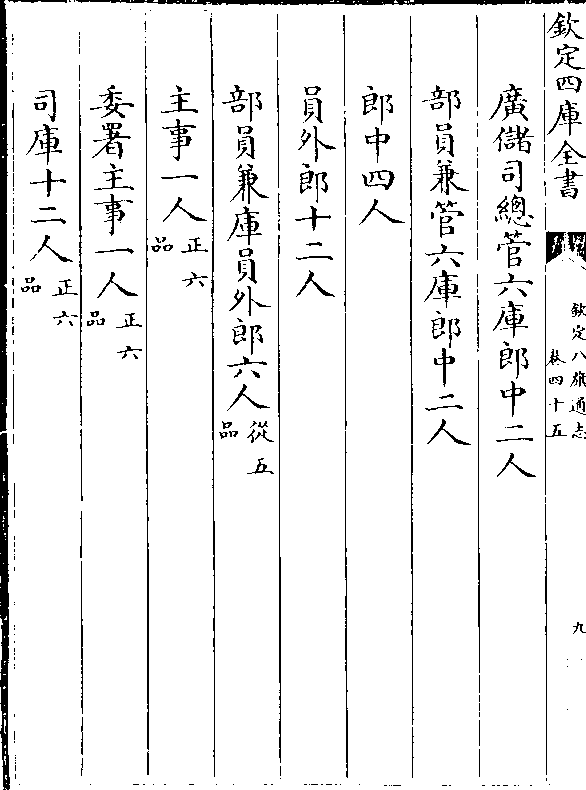 欽定四庫全書
欽定八旗通志
卷四十五
九
廣儲司總管六庫郎中二人
部員兼管六庫郎中二人
郎中四人
員外郎十二人
部員兼庫員外郎六人從五品
主事一人正六品
委署主事一人正六品
司庫十二人正六品